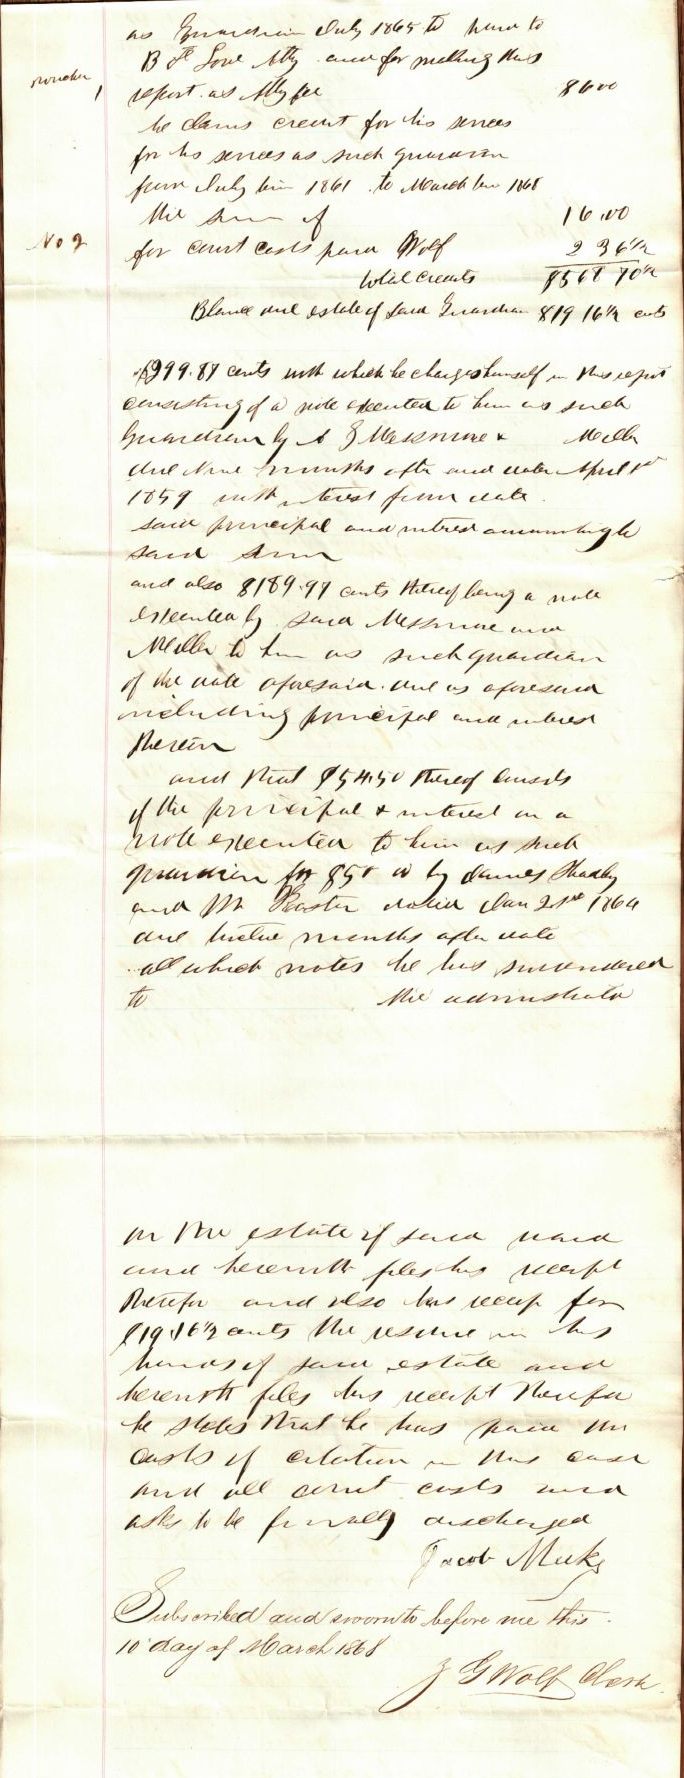 as Guardian July 1865 to paid to
B F Love Atty and for making this
voucher 1 report as Atty fee $6 00
he claims credit for his services
for his services as such guardian
from July term 1861 to March term 1868
the sum of 16.00
No 2 for court costs paid Wolf 2 36 1/2
total credits $568 70 1/2
Blance due estate of said Guardian $19 16 1/2 cents
$299.87 cents with which he charges himself in this report
consisting of a note executed to him as such
Guardian by Messmore & Miller
due nine months after and date April 1st
1859 with interest from date
said principal and interest amounting to
said sum
and also $189.97 cents thereof being a note
executed by said Messmore and
Miller to him as such guardian
of the date aforesaid due as aforesaid
including principal and interest
therein
and that $54.50 thereof consists
of the principal & interest on a
note executed to him as such
guardian for $50 00 by James
and Wm dated Jan 21st 1864
due twelve months after date
all which notes he has surrendered
to the administrator
on the estate of said ward
and herewith files his receipt
therefor and also his receip for
$19.16 1/2 cents the residue in his
hands of said estate and
herewith files his receipt therefor
he states that he has paid the
costs of citation in this case
and all court costs and
asks to be finally discharged
Jacob Meeks
Subscribed and sworn to before me this
10 day of March 1868
J G Wolf Clerk